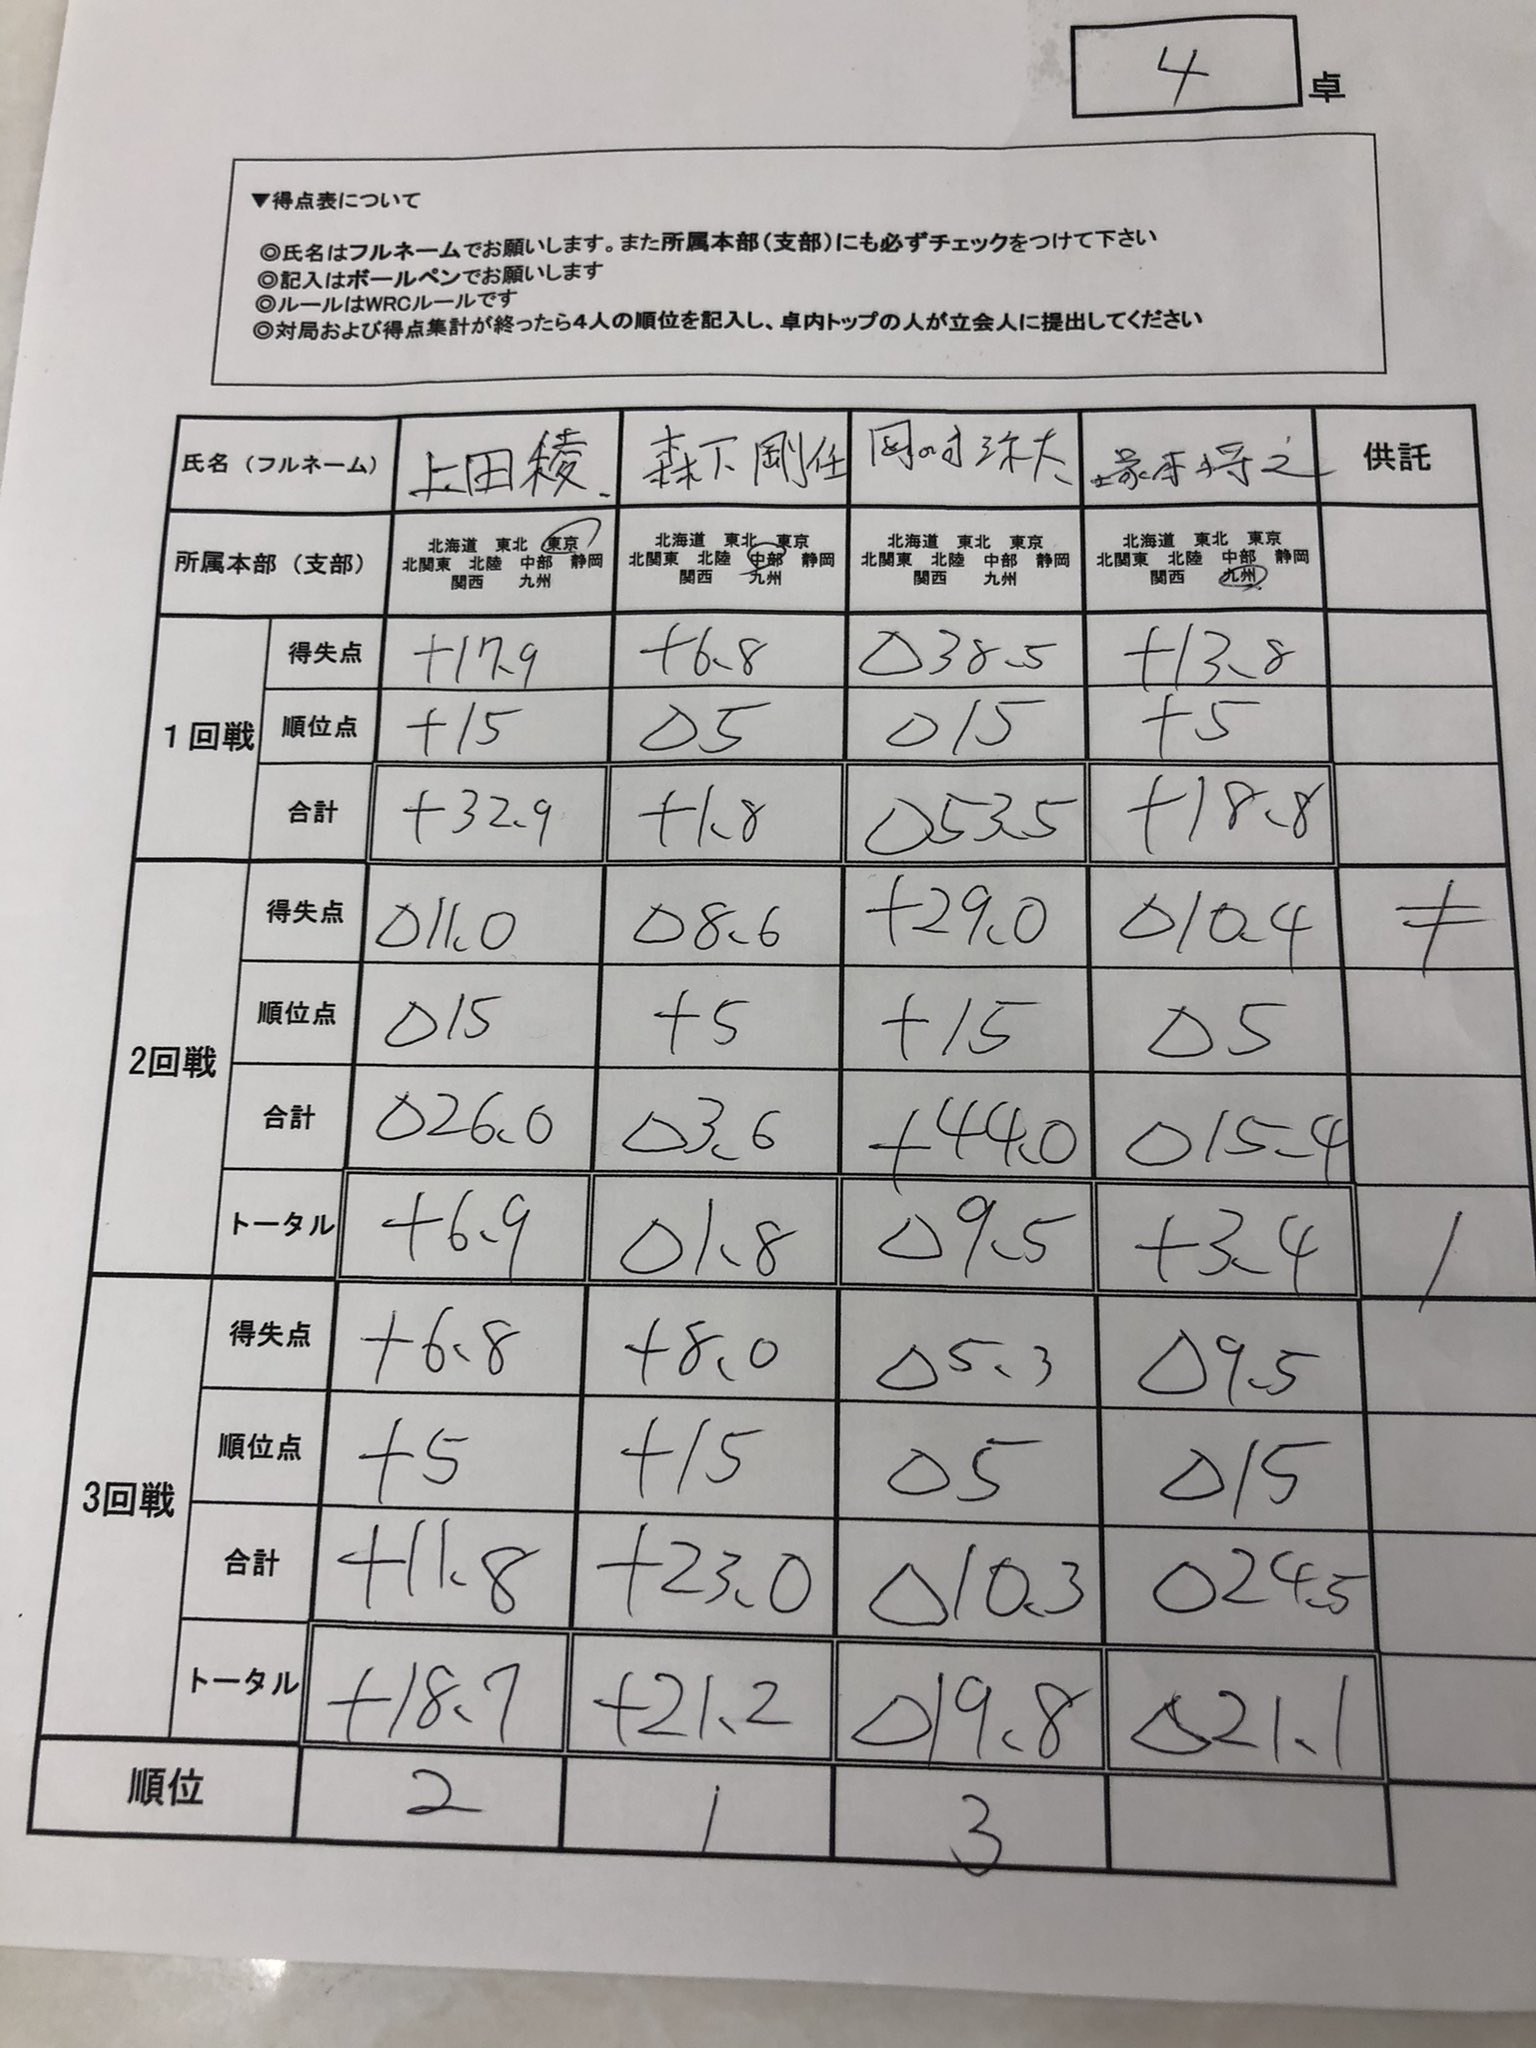 4 卓
▼得点表について
◎氏名はフルネームでお願いします。また所属本部(支部)にも必ずチェックをつけて下さい
◎記入はボールペンでお願いします
◎ルールはWRCルールです
◎対局および得点集計が終ったら4人の順位を記入し、卓内トップの人が立会人に提出してください
氏名(フルネーム) 上田稜 森下剛任 供託
所属本部(支部)
北海道 東北 東京 北海道 東北 東京 北海道 東北 東京 北海道 東北 東京
北関東 北陸 中部 静岡 北関東 北陸 中部 静岡 北関東 北陸 中部 静岡 北関東 北陸 中部 静岡
関西 九州 関西 九州 関西 九州 関西 九州
1回戦
得失点 +17.9 +6.8 △38.5 +13.8
順位点 +15 △5 △15 +5
合計 +32.9 +1.8 △53.5 +18.8
2回戦
得失点 △11.0 △8.6 +29.0 △10.4
順位点 △15 +5 +15 △5
合計 △26.0 △3.6 +44.0 △15.4
トータル +6.9 △1.8 △9.5 +3.4 1
3回戦
得失点 +6.8 +8.0 △5.3 △9.5
順位点 +5 +15 △5 △15
合計 +11.8 +23.0 △10.3 △24.5
トータル +18.7 +21.2 △19.8 △21.1
順位 2 1 3